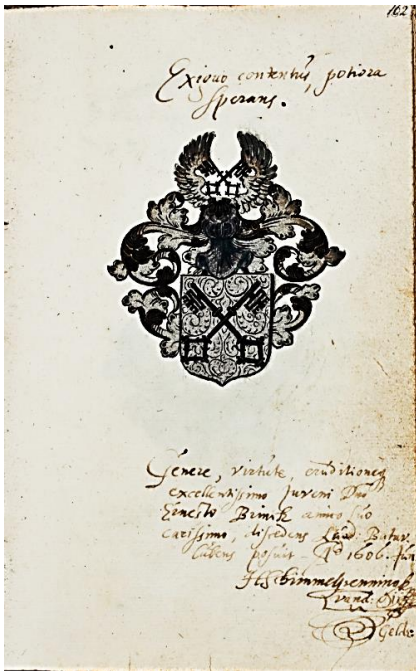 162
Exiguo contentus, potiora
Sperans.
Genere, virtute, eruditioneq
excellentissimo Juveni Dno
Ernesto Brinck amico suo
carissimo, discedens Lugd. Batav.
lubens posuit Ao 1606. Jun
HSchimmelpenninck
Geldr.